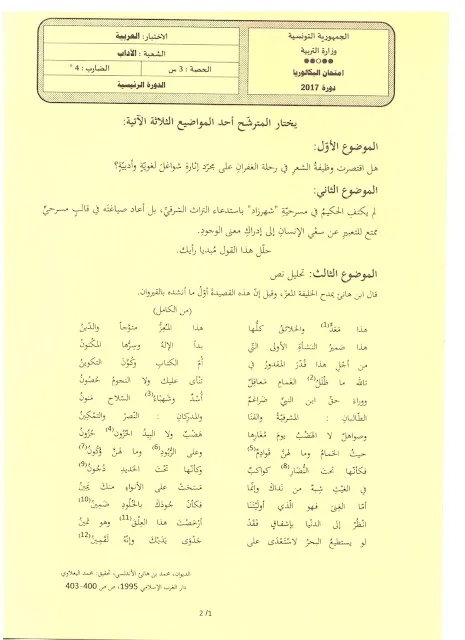 الجمهورية التونسية
وزارة التربية
امتحان البكالوريا
دورة 2017
الاختبار: العربية
الشعبة: الآداب
الحصة: 3 س الضارب: 4
الدورة الرئيسية
يختار المترشّح أحد المواضيع الثلاثة الآتية:
الموضوع الأوّل:
هل اقتصرت وظيفةُ الشعرِ في رحلة الغفران على مجرّد إثارة شواغلَ لغويّةٍ وأدبيّةٍ؟
الموضوع الثاني:
لم يكتفِ الحكيمُ في مسرحيّةِ "شهرزاد" باستدعاء التراث الشرقيّ، بل أعاد صياغتَه في قالبٍ مسرحيٍّ
ممتع للتعبير عن سعْيِ الإنسانِ إلى إدراكِ معنى الوجودِ.
حلّل هذا القول مُبديا رأيك.
الموضوع الثالث: تحليل نص
قال ابن هانئ يمدح الخليفة المعزّ، وقيل إنّ هذه القصيدةَ أوّلُ ما أنشده بالقيروان.
(من الكامل)
هذا مَعَدٌّ(1) والخلائقُ كلُّها هذا المُعِزُّ متوَّجاً والدّينُ
هذا ضميرُ النشأةِ الأولى التي بدأ الإلهُ وسِرُّها المكْنونُ
من أجْلِ هذا قُدّرَ المقدورُ في أمّ الكتابِ وكُوّنَ التكوينُ
تالله ما ظُلَلُ(2) الغمامِ مَعاقِلٌ تَنْأى عليك ولا النجومُ حُصُونُ
ووراءَ حقّ ابن النبيّ ضَراغمٌ أُسْدٌ وشَهْباءُ(3) السّلاحِ مَنونُ
الطّالبانِ : المشرفيّةُ والقَنا والمدركانِ : النّصرُ والتمْكينُ
وصواهلٌ لا الهَضْبُ يومَ مَغارِها هَضْبٌ ولا البِيدُ الحُزُون(4) حُزُونُ
حيثُ الحَمامُ وما لهنّ قَوادِمٌ(5) وعلى الرُّيُودِ(6) وما لهنّ وُكُونُ(7)
فكأنّها تحتَ النُّضارِ(8) كواكبٌ وكأنّها تحْتَ الحديدِ دُجُونُ(9)
في الغَيْثِ شِبْهٌ من نَداكَ وإنّما مَسَحَتْ على الأنْواءِ منك يَمِينُ
أمّا الغِنى فهو الّذي أَوْلَيْتَنا فكأنّ جُودَكَ بالخُلُودِ ضَمِينُ(10)
انظُرْ إلى الدنيا بإشفاقٍ فَقَدْ أرْخَصْتَ هذا العِلْقَ(11) وهو ثَمينُ
لو يستطيعُ البحرُ لاسْتَعْدَى على جَدْوَى يَدَيْكَ وإنّهُ لَقَمِينُ(12)
الديوان، محمد بن هانئ الأندلسي، تحقيق: محمد اليعلاوي
دار الغرب الإسلامي 1995، ص ص 400-403
2/1